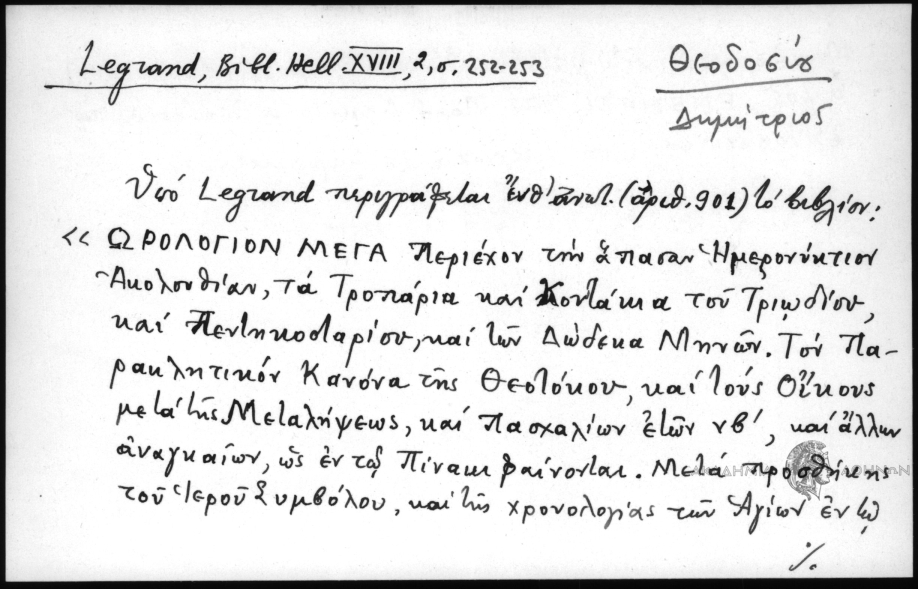 Legrand, Bibl. Hell. XVIII, 2, σ. 252-253
Θεοδοσίου
Δημήτριος
Ὑπό Legrand περιγράφεται ὑπ' ἀριθ. (ἀριθ. 901) τό βιβλίον:
« ΩΡΟΛΟΓΙΟΝ ΜΕΓΑ Περιέχον τήν ἅπασαν Ἡμερονύκτιον
Ἀκολουθίαν, τά Τροπάρια καί Κοντάκια τοῦ Τριῳδίου,
καί Πεντηκοσταρίου, καί τῶν Δώδεκα Μηνῶν. Τόν Πα-
ρακλητικόν Κανόνα τῆς Θεοτόκου, καί τούς Οἴκους
μετά τῆς Μεταλήψεως, καί Πασχαλίων ἐτῶν νβ', καί ἄλλων
ἀναγκαίων, ὡς ἐν τῷ Πίνακι φαίνονται. Μετά προσθήκης
τοῦ Ἱεροῦ Συμβόλου, καί τῆς χρονολογίας τῶν Ἁγίων ἐν τῷ
./.